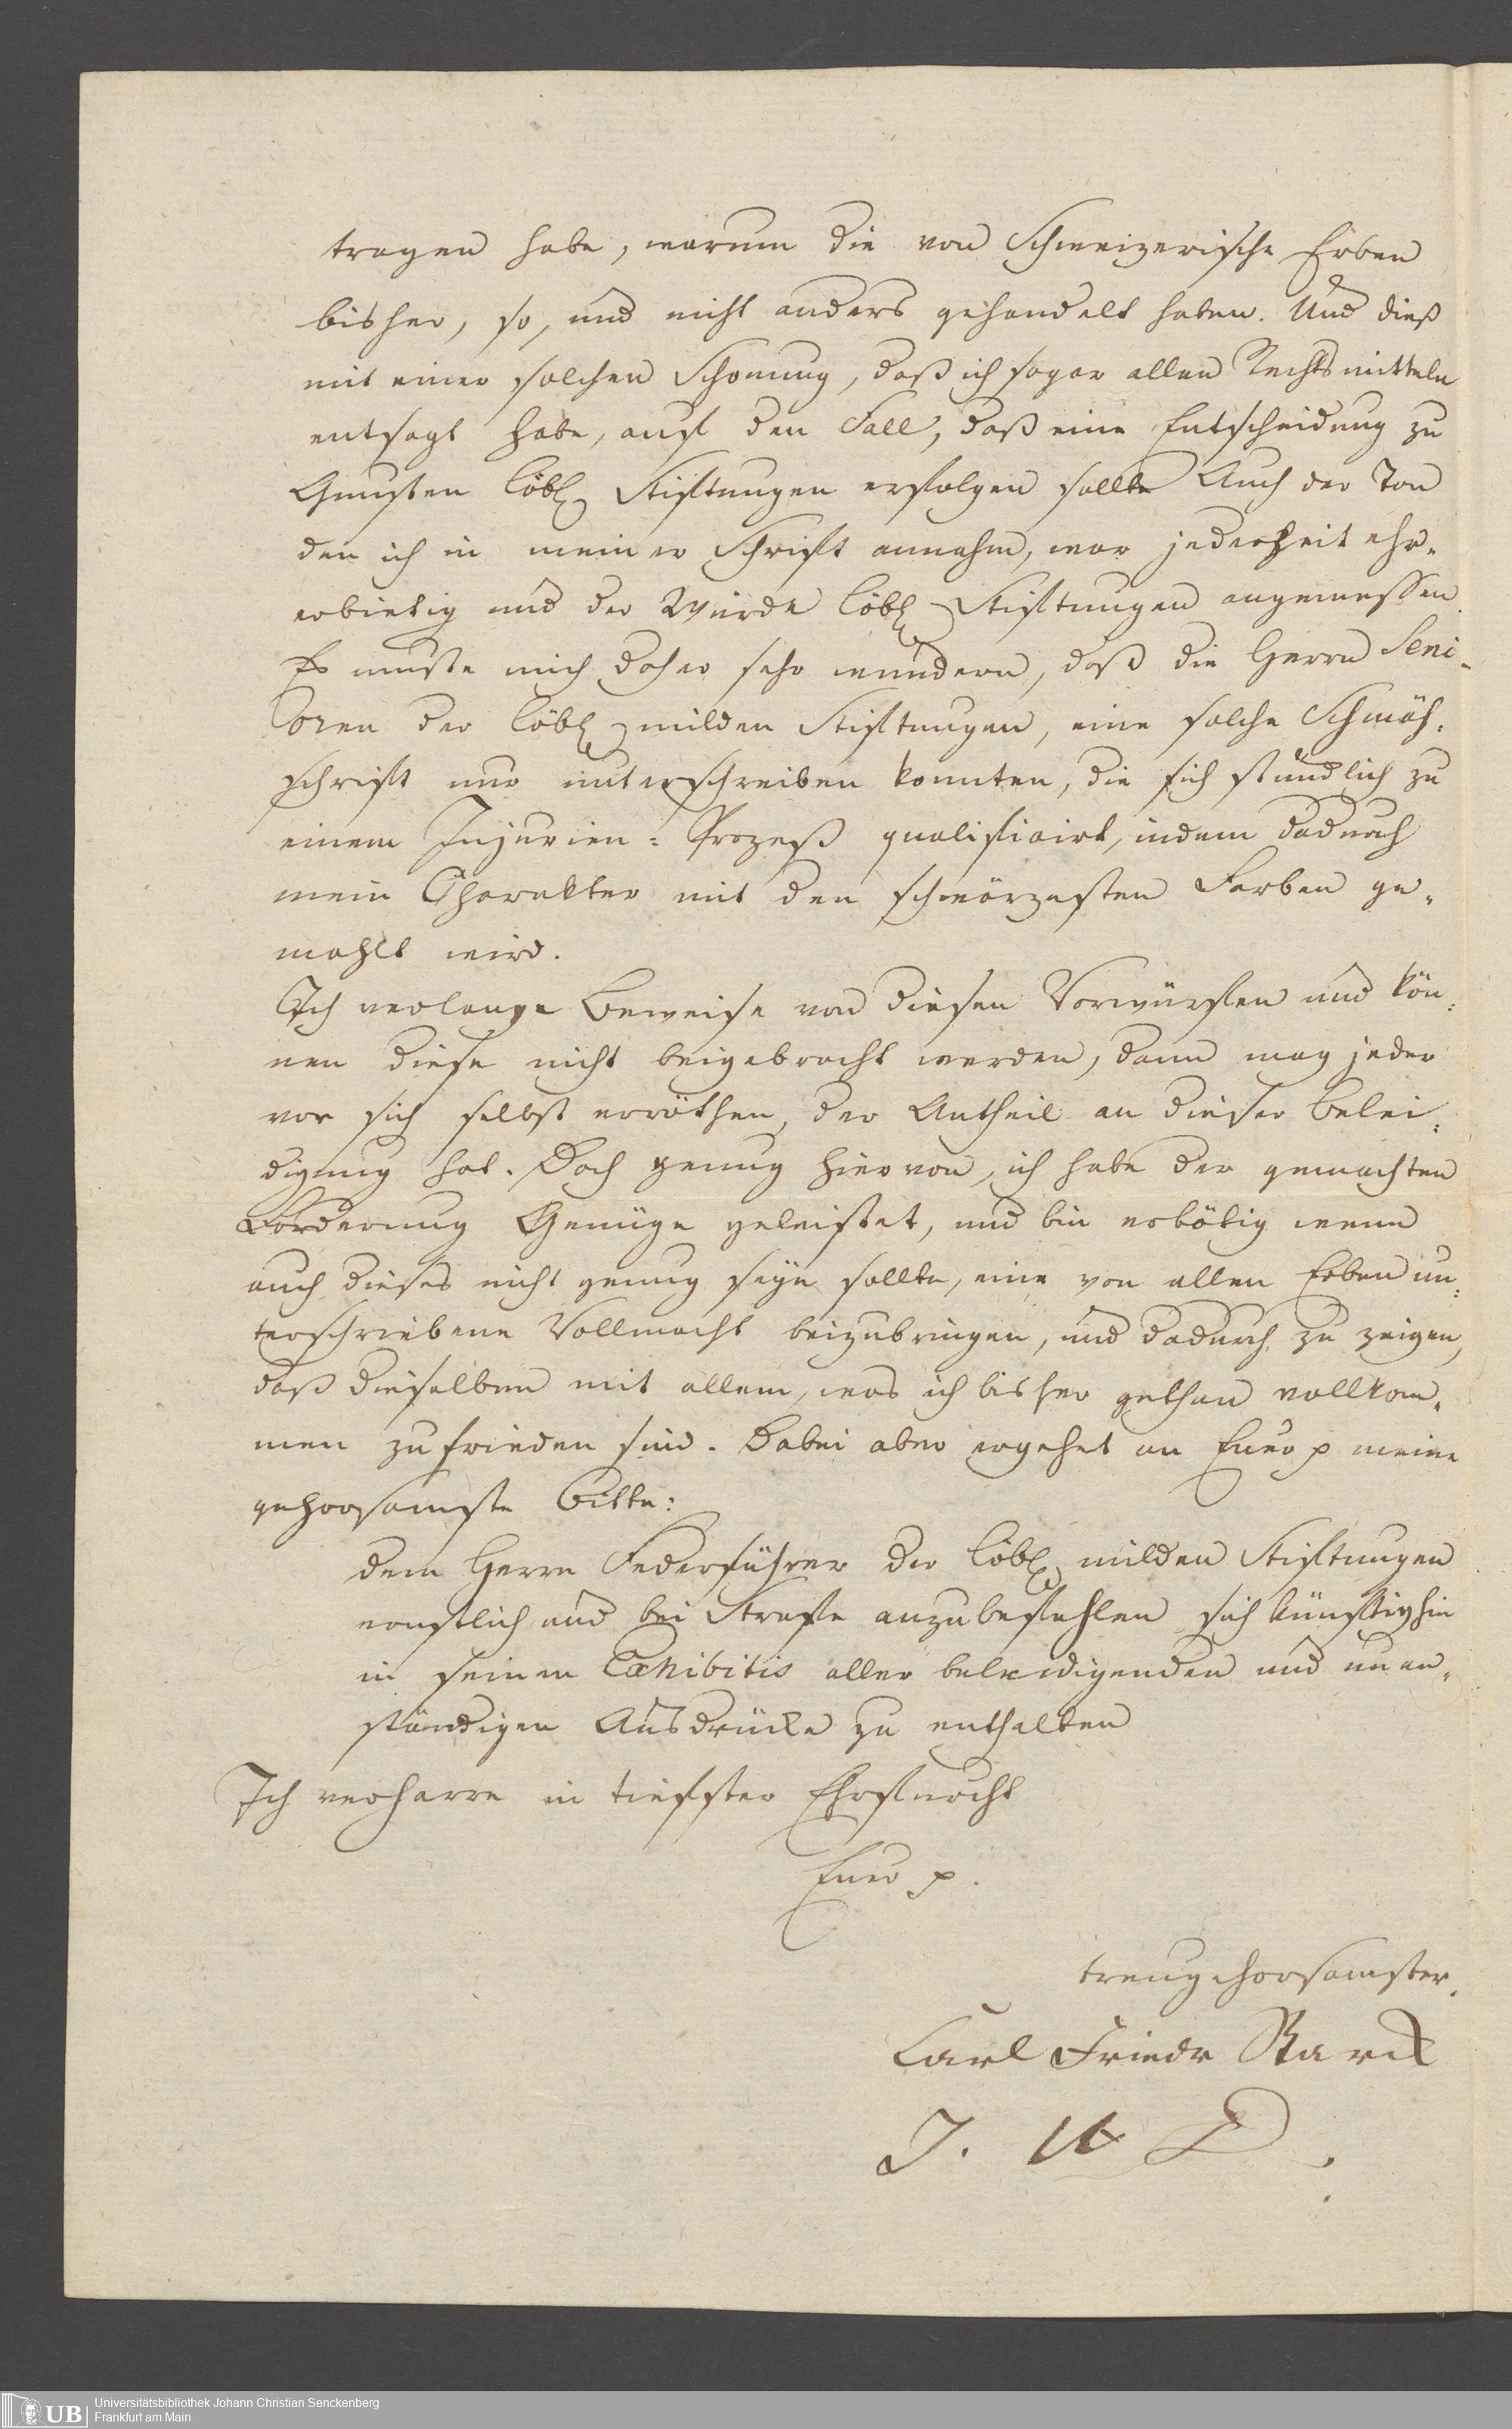 tragen habe, warum die von Schweizerische Erben
bisher, so, und nicht anders gehandelt haben. Und dieß
mit einer solchen Schonung, daß ich sogar allen Rechtsmitteln
entsagt habe, auf den Fall, daß eine Entscheidung zu
Gunsten löbl. Stiftungen erfolgen sollte Auch der Ton
den ich in meiner Schrift annahm, war jederzeit ehr-
erbietig und der Würde löbl. Stiftungen angemessen.
Es mußte mich daher sehr wundern, daß die Herrn Seni-
oren der löbl. milden Stiftungen, eine solche Schmäh-
schrift nur unterschreiben konnten, die sich stündlich zu
einem Injurien-Prozeß qualifizirt, indem dadurch
mein Charakter mit den schwärzesten Farben ge-
mahlt wird.
Ich verlange Beweise von diesen Vorwürfen und kön-
nen diese nicht beigebracht werden, dann mag jeder
vor sich selbst erröthen, der Antheil an dieser Belei-
digung hat. Doch genug hiervon, ich habe der gemachten
Forderung Genüge geleistet, und bin erbötig wenn
auch dieses nicht genug seyn sollte, eine von allen Erben un-
terschriebene Vollmacht beizubringen, und dadurch zu zeigen,
daß dieselben mit allem, was ich bisher gethan vollkom-
men zufrieden sind. Dabei aber ergehet an Euer p meine
gehorsamste Bitte:
dem Herrn Federführer der löbl. milden Stiftungen
ernstlich und bei Strafe anzubefehlen sich künftighin
in seinen Exhibitis aller beleidigenden und unan-
ständigen Ausdrücke zu enthalten
Ich verharre in tiefster Ehrfurcht
Euer p.
treugehorsamster.
Carl Friedr Starck
J. U D.
Universitätsbibliothek Johann Christian Senckenberg
UB
Frankfurt am Main